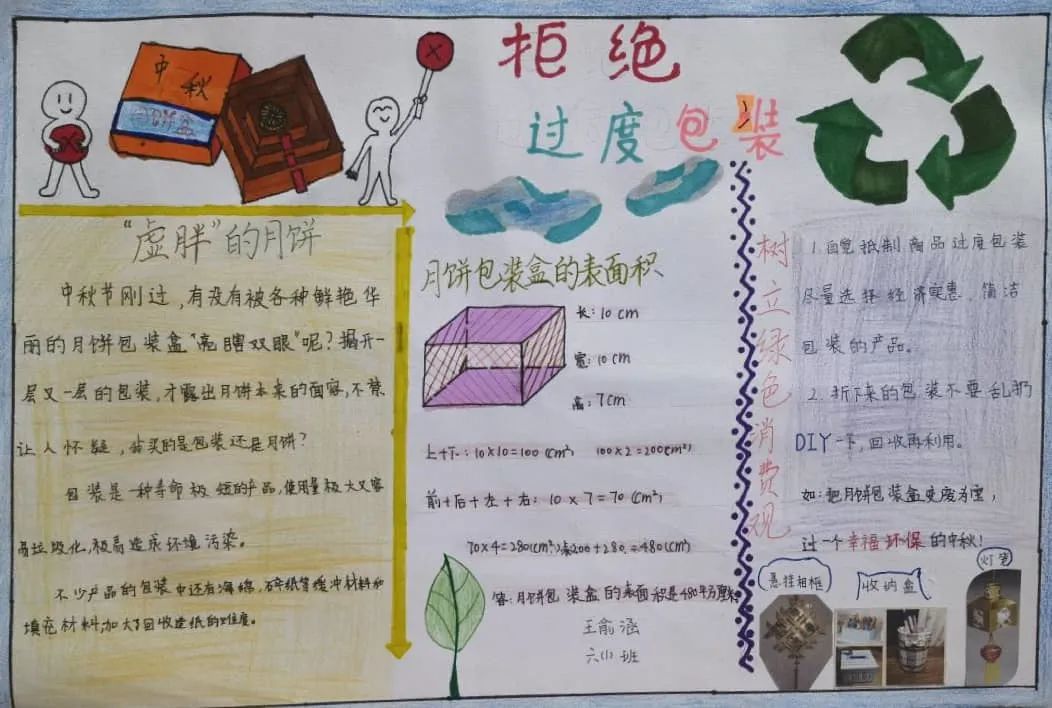 拒绝
过度包装
中秋
“虚胖”的月饼
中秋节刚过，有没有被各种鲜艳华
丽的月饼包装盒“亮瞎双眼”呢？揭开一
层又一层的包装，才露出月饼本来的面容，不禁
让人怀疑，当买的是包装还是月饼？
包装是一种寿命极短的产品，使用量极大又容
易垃圾化，极易造成环境污染。
不少产品的包装中还有海绵，碎纸等缓冲材料和
填充材料，加大了回收造纸的难度。
月饼包装盒的表面积
长：10cm
宽：10cm
高：7cm
上+下：10×10=100（cm²） 100×2=200（cm²）
前+后+左+右：10×7=70（cm²）
70×4=280（cm²） 200+280=480（cm²）
答：月饼包装盒的表面积是480平方厘米
王俞涵
六（1）班
树立绿色消费观
1.自觉抵制商品过度包装
尽量选择经济实惠，简洁
包装的产品。
2.折下来的包装不要乱扔
DIY一下，回收再利用。
如：把月饼包装盒变废为宝，
过一个幸福环保的中秋！
悬挂相框
收纳盒
灯笼